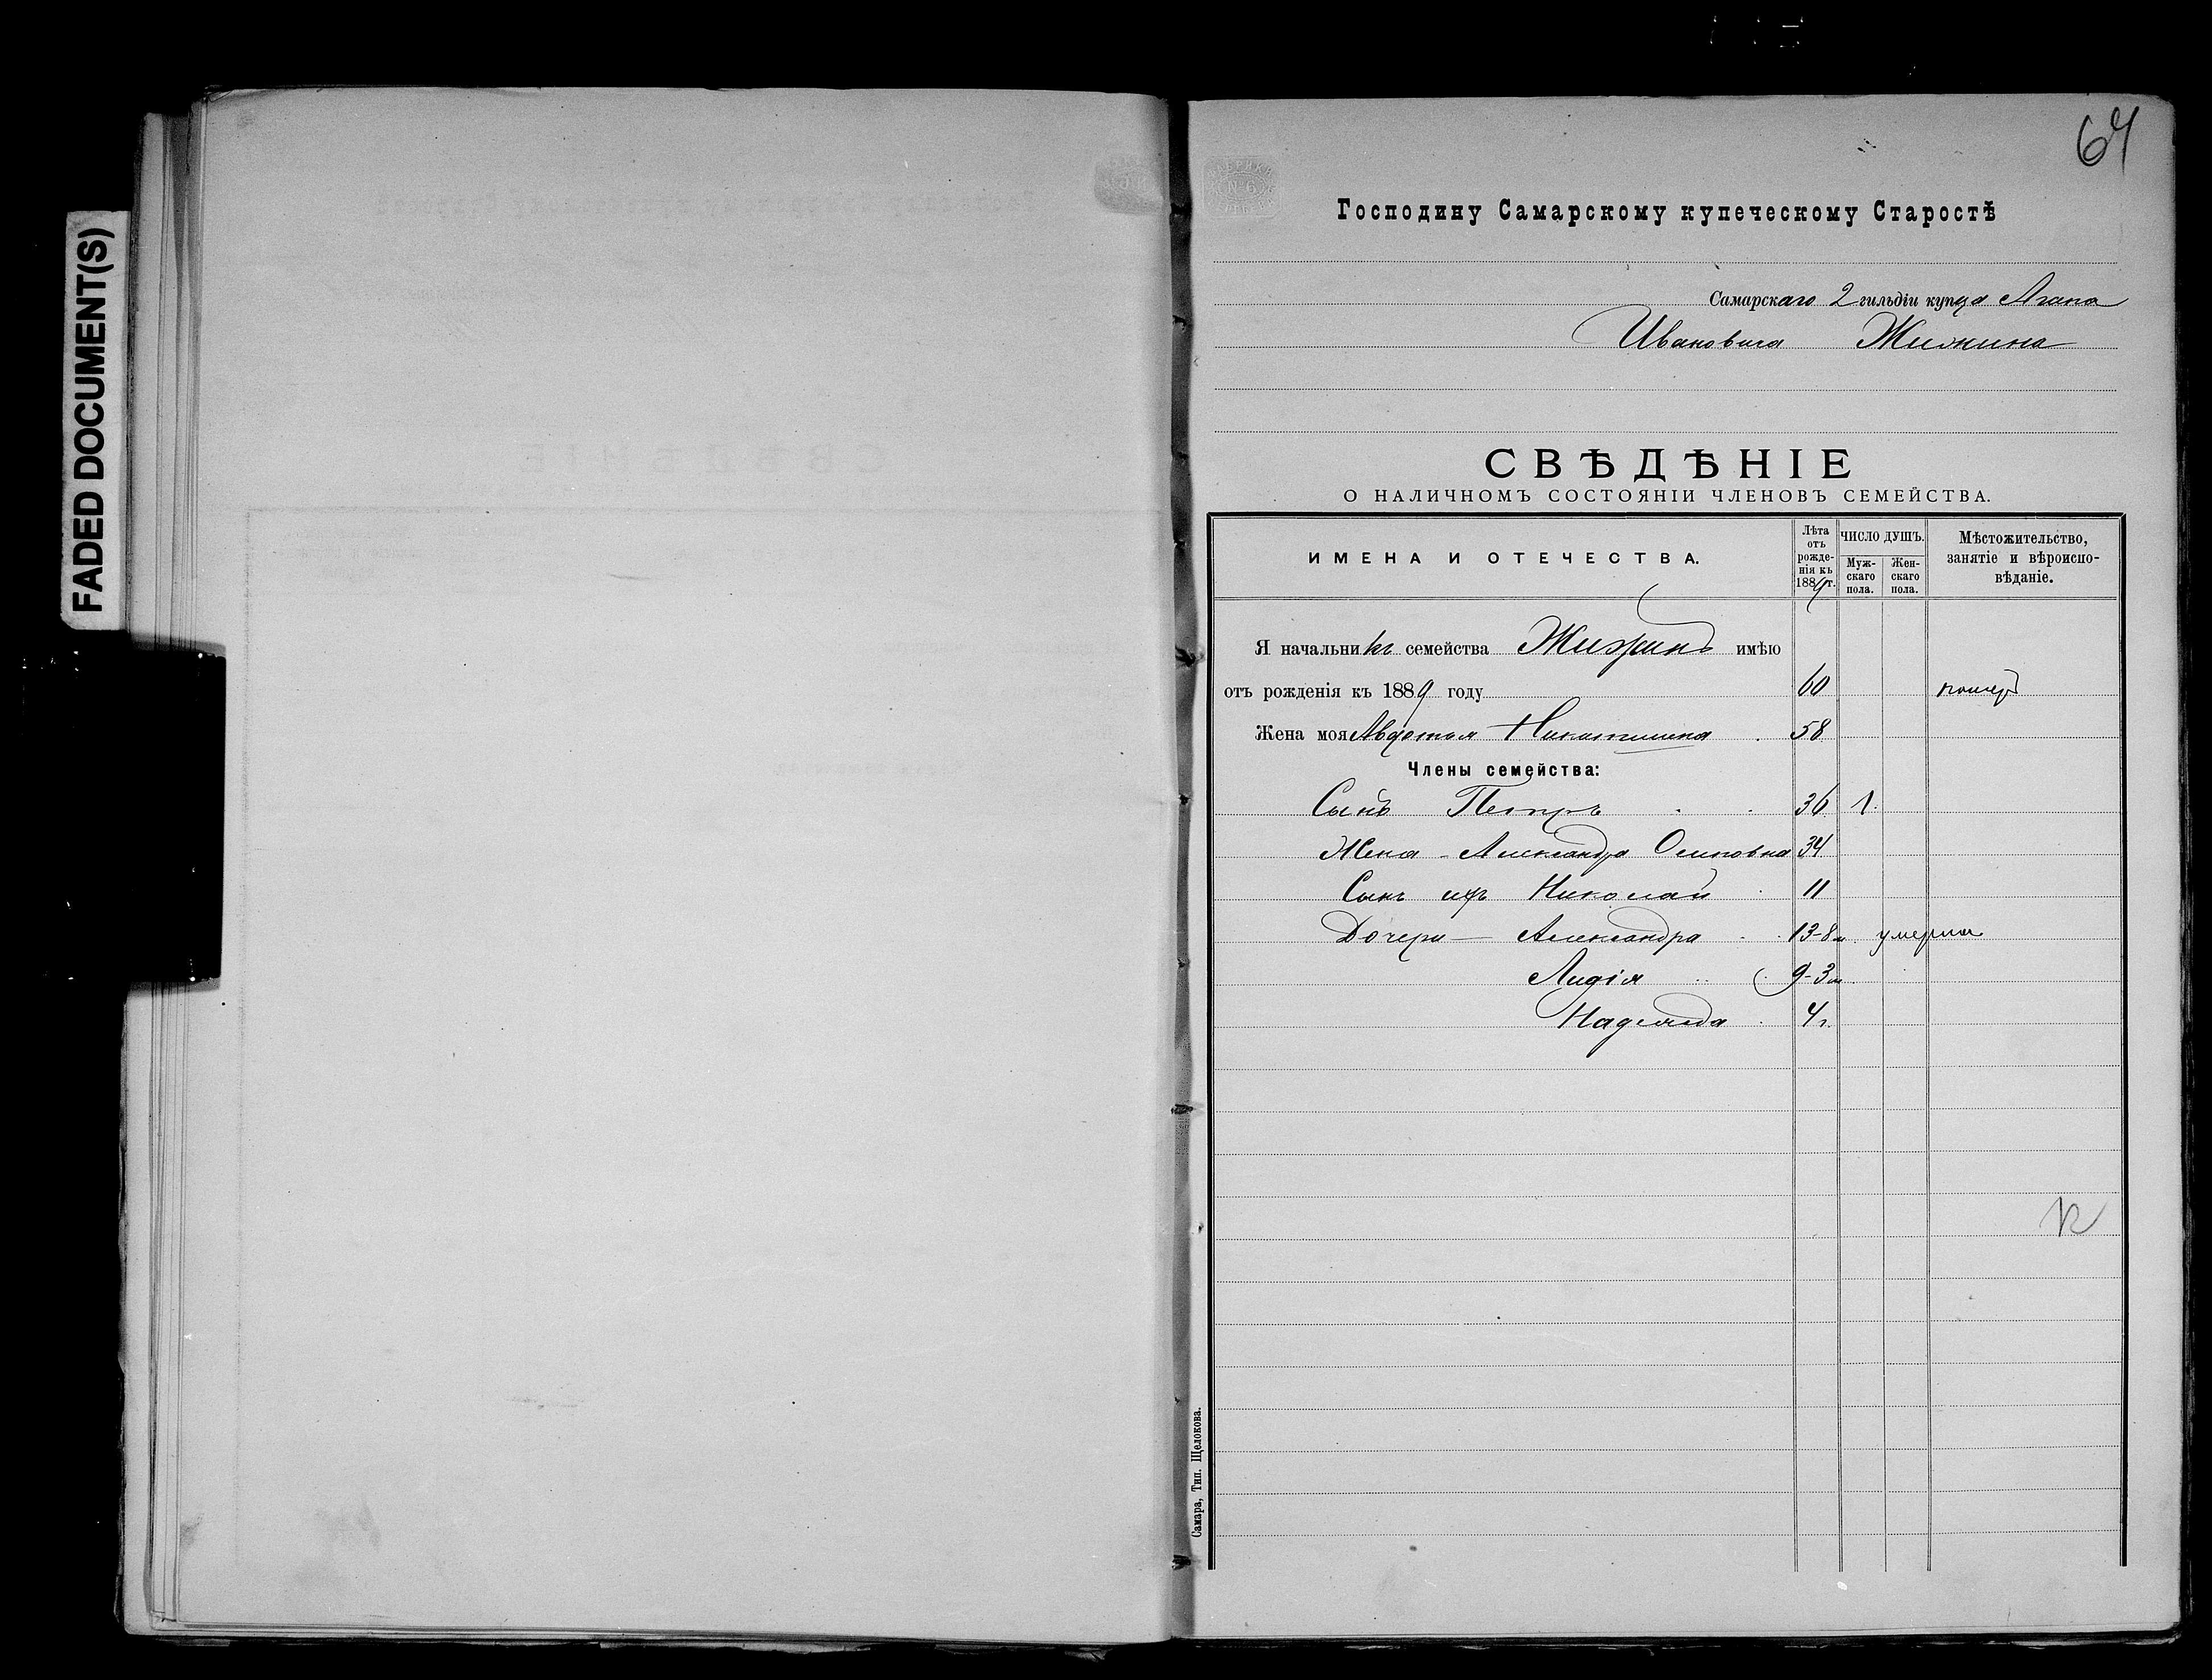 FADED DOCUMENT(S)
64
Господину Самарскому купеческому Старостѣ
Самарскаго 2 гильдіи купца Агапа
Ивановича
СВѢДѢНІЕ
О НАЛИЧНОМЪ СОСТОЯНІИ ЧЛЕНОВЪ СЕМЕЙСТВА.
ИМЕНА И ОТЕЧЕСТВА.
Лѣта отъ рожде-нія къ 1889 г.
ЧИСЛО ДУШЪ.
Муж-скаго пола.
Жен-скаго пола.
Мѣстожительство, занятіе и вѣроиспо-вѣданіе.
Я начальникъ семейства имѣю
отъ рожденія къ 1889 году 60 померъ
Жена моя Авдотья Никитишна 58
Члены семейства:
Сынъ Петръ 36 1.
Жена - Александра Осиповна 34
Сынъ ихъ Николай 11
Дочери — Александра 13-8 м. умерла
Лидія 9-3 м.
Надежда 4 г.
Самара, Тип. Щелокова.